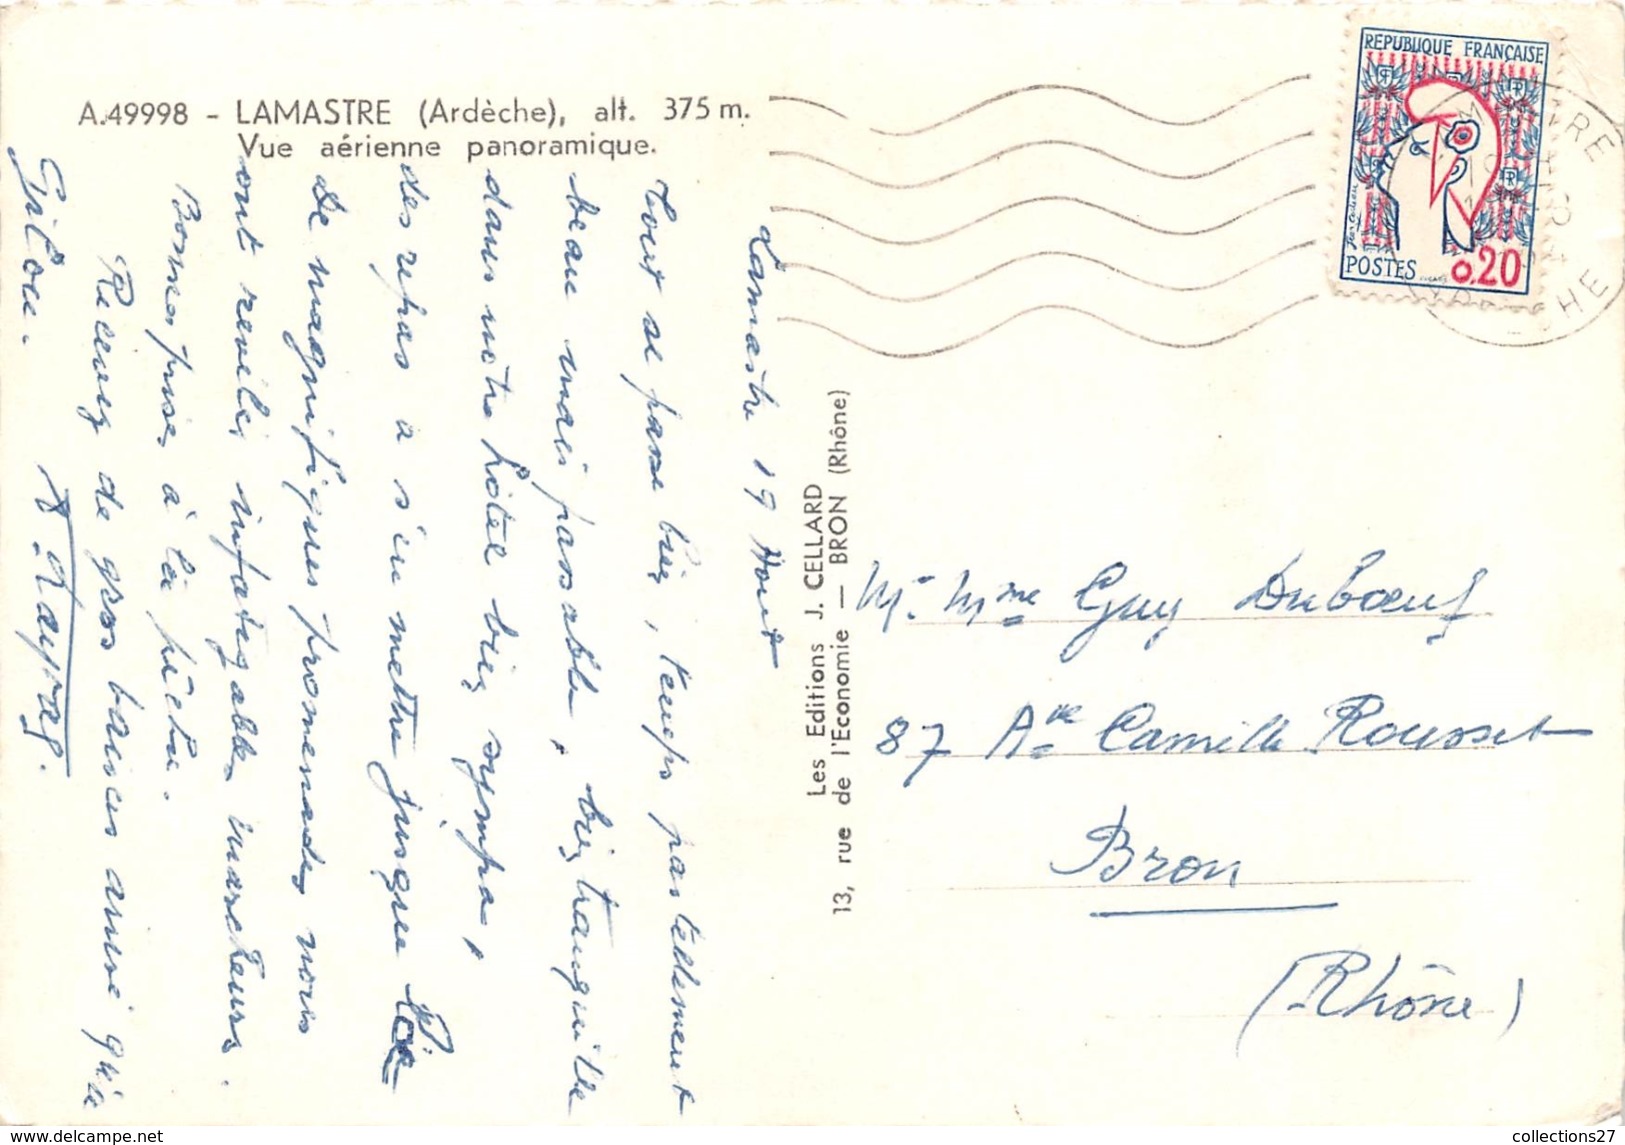 A.49998 - LAMASTRE (Ardèche), alt. 375 m.
Vue aérienne panoramique.
Lamastre 19 Aout
Tout se passe bien, temps pas tellement
beau mais passable, bien tranquille
dans notre hôtel bien sympa,
des repas a s'en mettre jusque
De magnifiques promenades nous
ont revélés infatigables marcheurs.
Bonnes prises à la pêche.
Recevez de gros baisers ainsi que
Gilou.
Les Editions J. CELLARD
13, rue de l'Economie — BRON (Rhône)
REPUBLIQUE FRANÇAISE
POSTES 0,20
Mr Mme Guy Dubœuf
87 Ave Camille Rousset
Bron
(Rhône)
collections27